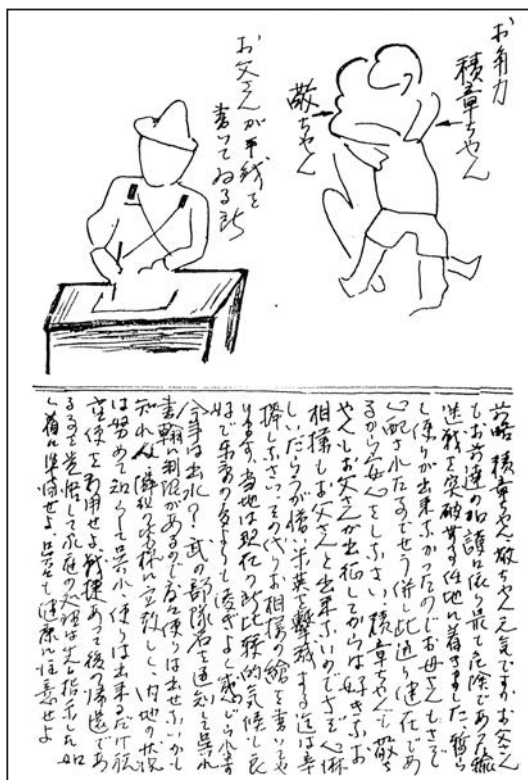 お角力
積章ちやん
敬ちやん
お父さんが手紙を
書いてゐる所
前略 積章ちやん 敬ちやん元気ですか
もお前達の加護に依り最も危険であつた輸
送戦を突破 無事任地に着きました、暫ら
く便りが出来なかつたのでお母さんもさぞ
心配されたでせう 併し此通り健在であ
るから安心をしなさい 積章ちやんも敬ち
やんもお父さんが出征してからは好きなお
相撲もお父さんと出来ないのでさぞ心淋
しいだらうが憎い米英を撃滅する迄は辛
抱しなさい、その代りお相撲の絵を書いてや
ります、当地は現在の所比較的気候も良
好で東京の夏よりも凌ぎよく感じられます
今年は出水？ 武の部隊名を通知して呉れ
書翰に制限があるので 便りは出せないかも
知れぬ 隣組の皆様に宜敷く、内地の状況
は努めて知らして呉れ 便りは出来るだけ航
空便を利用せよ 戦捷あつて後の帰還であ
るを覚悟して不在の処理は先に指示した如
く 準備せよ、呉々も健康に注意せよ